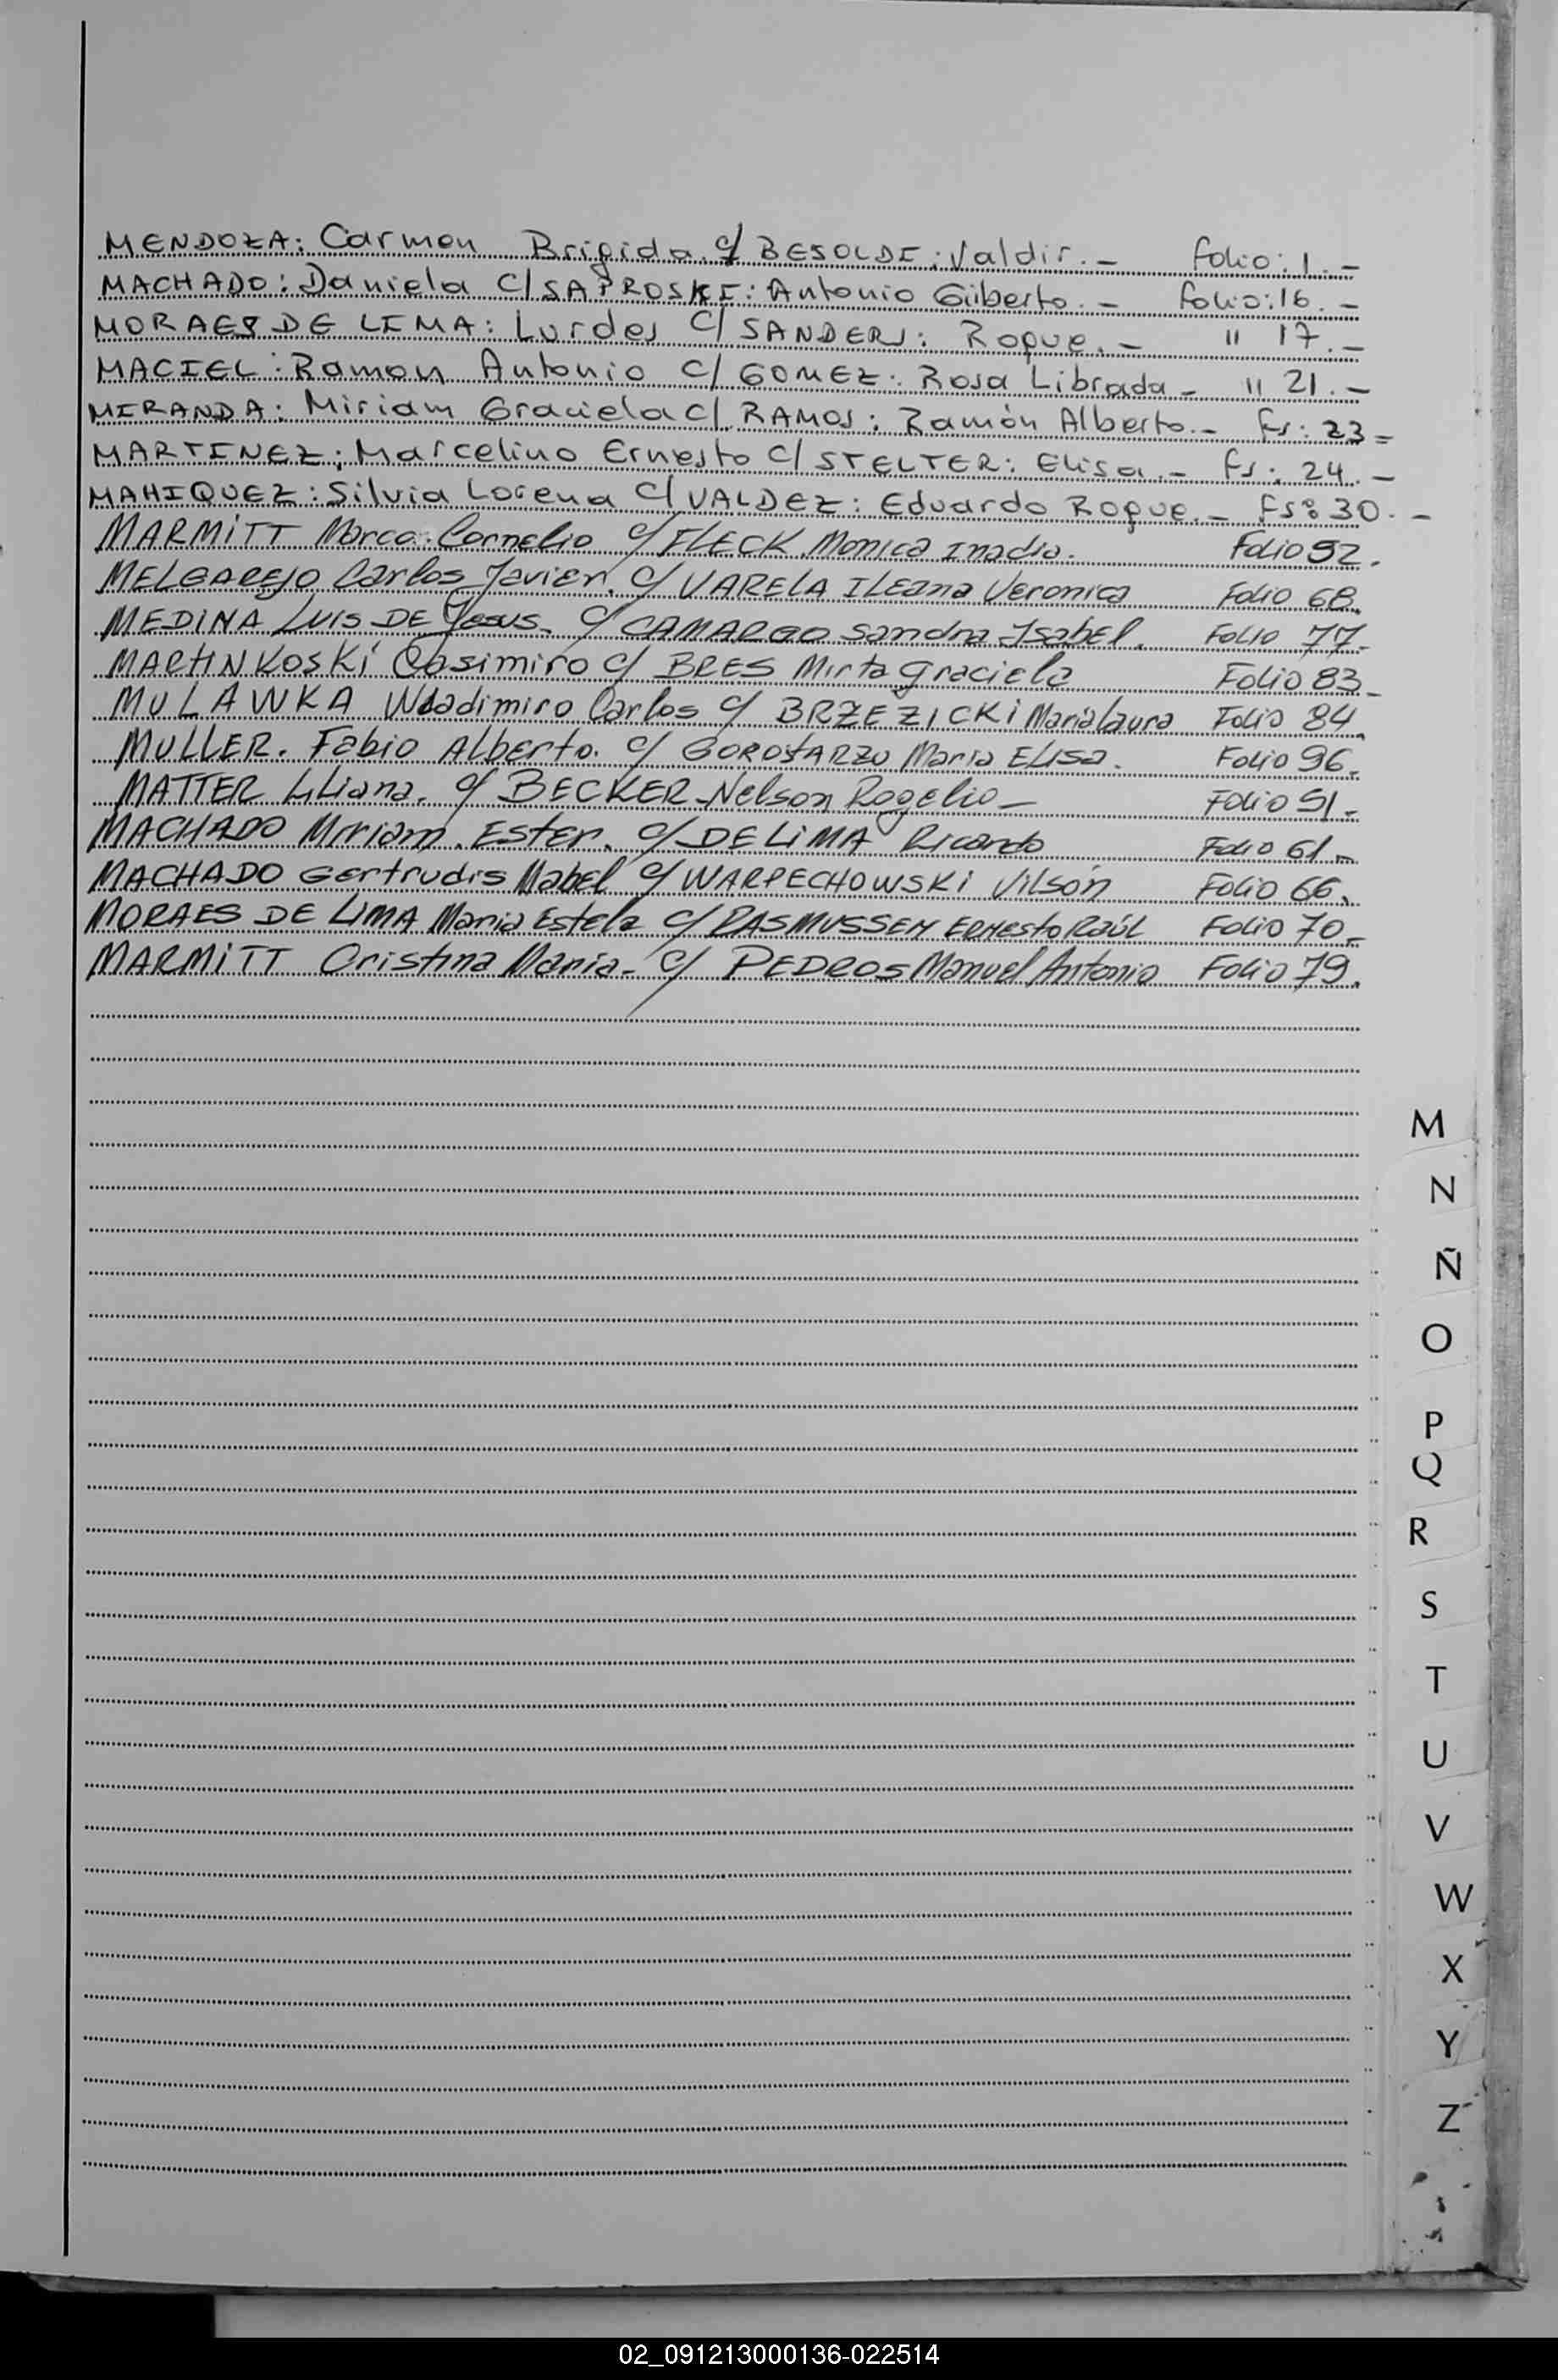 MENDOZA: Carmen Brigida. c/ BESOLDI: Valdir. - folio: 1. -
MACHADO: Daniela c/ SAPROSKI: Antonio Gilberto. - folio: 16. -
MORAES DE LIMA: Lurdes c/ SANDERS: Roque. - " 17. -
MACIEL: Ramon Antonio c/ GOMEZ: Rosa Librada - " 21. -
MIRANDA: Miriam Graciela c/ RAMOS: Ramón Alberto. - Fs: 23 =
MARTINEZ: Marcelino Ernesto c/ STELTER: Elisa. - Fs: 24. -
MAHIQUEZ: Silvia Lorena c/ VALDEZ: Eduardo Roque. - Fs: 30. -
MARMITT Marco Cornelio c/ FLECK Monica Inadia. Folio 52.
MELGAREJO Carlos Javier. c/ VARELA ILeana Veronica Folio 68.
MEDINA LUIS DE Jesus. c/ CAMARGO Sandra Isabel. Folio 77.
MARTINKOSKI Casimiro c/ BRES Mirta graciela Folio 83 -
MULAWKA Wladimiro Carlos c/ BRZEZICKI Maria laura Folio 84
MULLER. Fabio Alberto. c/ Maria ELisa. Folio 96.
MATTER Liliana. c/ BECKER Nelson Rogelio - Folio 51 -
MACHADO Miriam. Ester. c/ DE LIMA Ricardo Folio 61 -
MACHADO Gertrudis Mabel c/ WARPECHOWSKI Vilsón Folio 66.
MORAES DE LIMA Maria Estela c/ RASMUSSEN Ernesto Raúl Folio 70 -
MARMITT Cristina Maria - c/ PEDROS Manuel Antonio Folio 79.
M
N
Ñ
O
P
Q
R
S
T
U
V
W
X
Y
Z
02_091213000136-022514